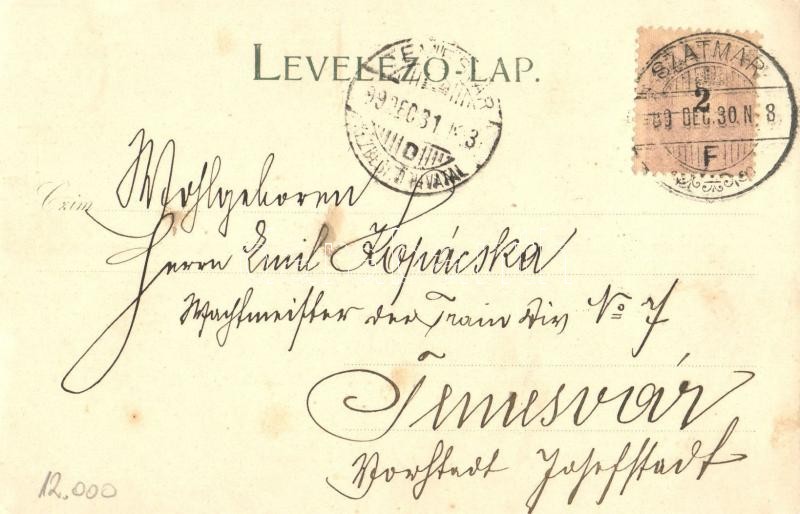 LEVELEZŐ-LAP.
TEMESVÁR
99 DEC. 31
D
SZATMÁR
2
89 DEC. 30. N. 8
F
Czím
Wohlgeboren
Herrn Emil Kopácska
Wachtmeister der Train Div No 7
Temesvár
Vorstadt Josefstadt
12.000